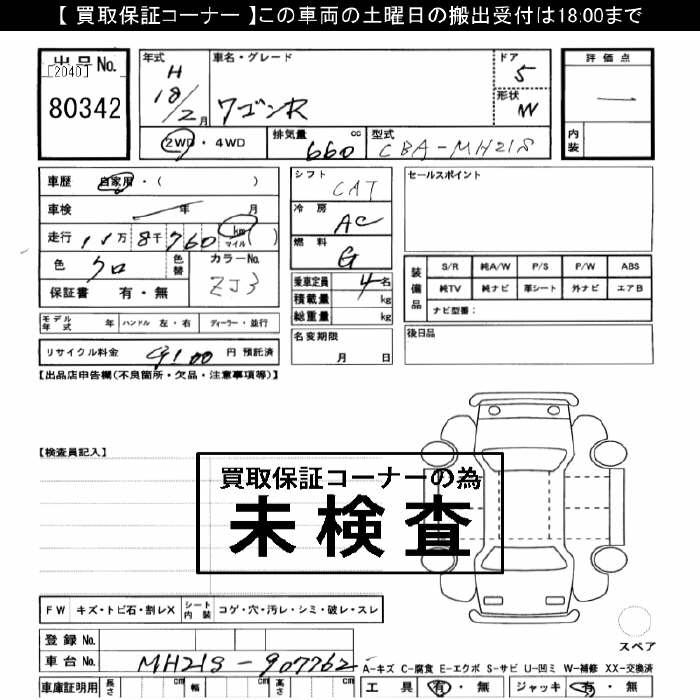 【 買取保証コーナー 】この車両の土曜日の搬出受付は18:00まで
出品No. [2040] 80342
年式 H 18/2月
車名・グレード ワゴンR
ドア 5
形状 W
評価点 —
内装
2WD・4WD
排気量 660 cc
型式 CBA-MH21S
車歴 自家用・( )
車検 年 月
走行 11万8千760 km マイル ( )
色 クロ 色替
カラーNo. ZJ3
保証書 有・無
シフト CAT
冷房 AC
燃料 G
乗車定員 4名
積載量 kg
総重量 kg
セールスポイント
装備品 S/R 純A/W P/S P/W ABS
純TV 純ナビ 革シート 外ナビ エアB
ナビ型番:
モデル年式 年 ハンドル 左・右 ディーラー・並行
リサイクル料金 9100 円 預託済
名変期限 月 日
後日品
【出品店申告欄(不良箇所・欠品・注意事項等)】
【検査員記入】
買取保証コーナーの為
未検査
FW キズ・トビ石・割レX シート内装 コゲ・穴・汚レ・シミ・破レ・スレ
スペア
登録No.
車台No. MH21S-907762
A-キズ C-腐食 E-エクボ S-サビ U-凹ミ W-補修 XX-交換済
車庫証明用 長さ cm 幅 cm 高さ cm
工具 有・無 ジャッキ 有・無